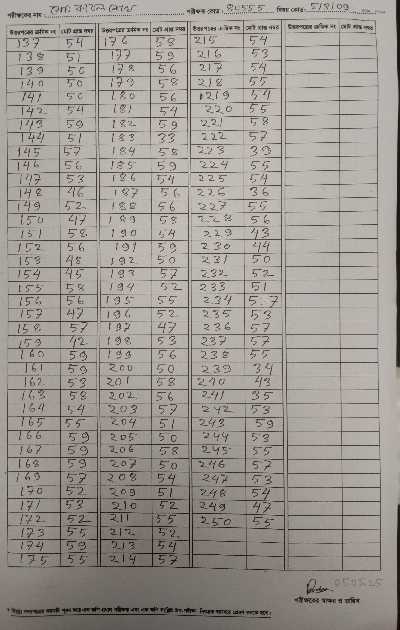 পরীক্ষকের নাম
পরীক্ষক কোড : 80555 বিষয় কোড : 5/8/09
উত্তরপত্রের ক্রমিক নং মোট প্রাপ্ত নম্বর উত্তরপত্রের ক্রমিক নং মোট প্রাপ্ত নম্বর উত্তরপত্রের ক্রমিক নং মোট প্রাপ্ত নম্বর উত্তরপত্রের ক্রমিক নং মোট প্রাপ্ত নম্বর
137 54 176 58 215 54
138 51 177 59 216 53
139 50 178 56 217 54
140 50 179 58 218 55
141 50 180 56 219 54
142 54 181 54 220 55
143 59 182 59 221 58
144 51 183 33 222 57
145 57 184 58 223 39
146 56 185 59 224 55
147 53 186 54 225 54
148 46 187 56 226 36
149 52 188 56 227 55
150 47 189 58 228 56
151 58 190 54 229 43
152 56 191 59 230 44
153 48 192 50 231 50
154 45 193 57 232 52
155 58 194 52 233 51
156 56 195 55 234 5.7
157 47 196 52 235 53
158 57 197 47 236 57
159 42 198 53 237 57
160 59 199 56 238 55
161 59 200 50 239 34
162 53 201 58 240 43
163 58 202 56 241 35
164 54 203 57 242 53
165 55 204 51 243 59
166 59 205 50 244 53
167 59 206 58 245 55
168 59 207 50 246 57
169 57 208 54 247 53
170 52 209 51 248 54
171 53 210 52 249 47
172 52 211 55 250 55
173 55 212 52
174 59 213 54
175 55 214 57
পরীক্ষকের স্বাক্ষর ও তারিখ